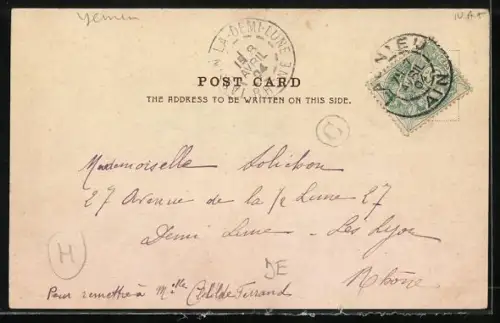 Yemen
LA-DEMI-LUNE
RHONE
AVRIL
04
LAGNIEU
AIN
POST CARD
THE ADDRESS TO BE WRITTEN ON THIS SIDE.
C
Mademoiselle Solichon
27 Avenue de la ½ Lune 27
Demi Lune - Les Lyon
Rhône
H
JE
Pour remettre à Mlle Clotilde Ferrand